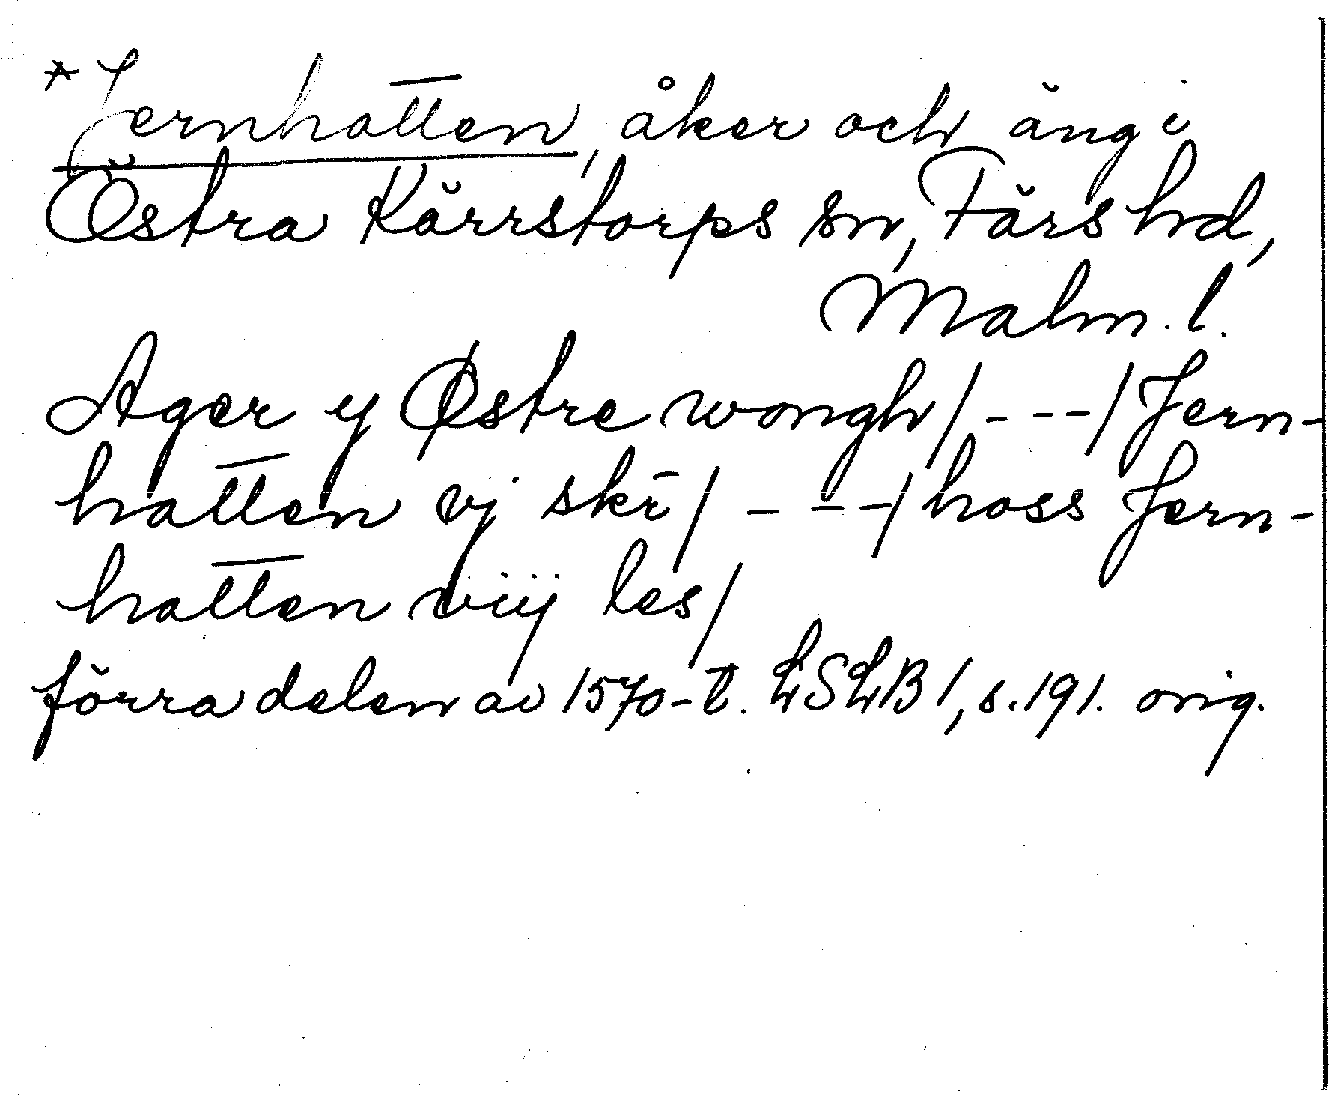 *Jernhatten, åker och äng i
Östra Kärrstorps sn, Färs hd,
Malm. l.
Ager y Østre wongh/---/Jern-
hatten vj skē/---/hoss Jern-
hatten viij les/
förra delen av 1570-t. LSLB 1, s. 191. orig.